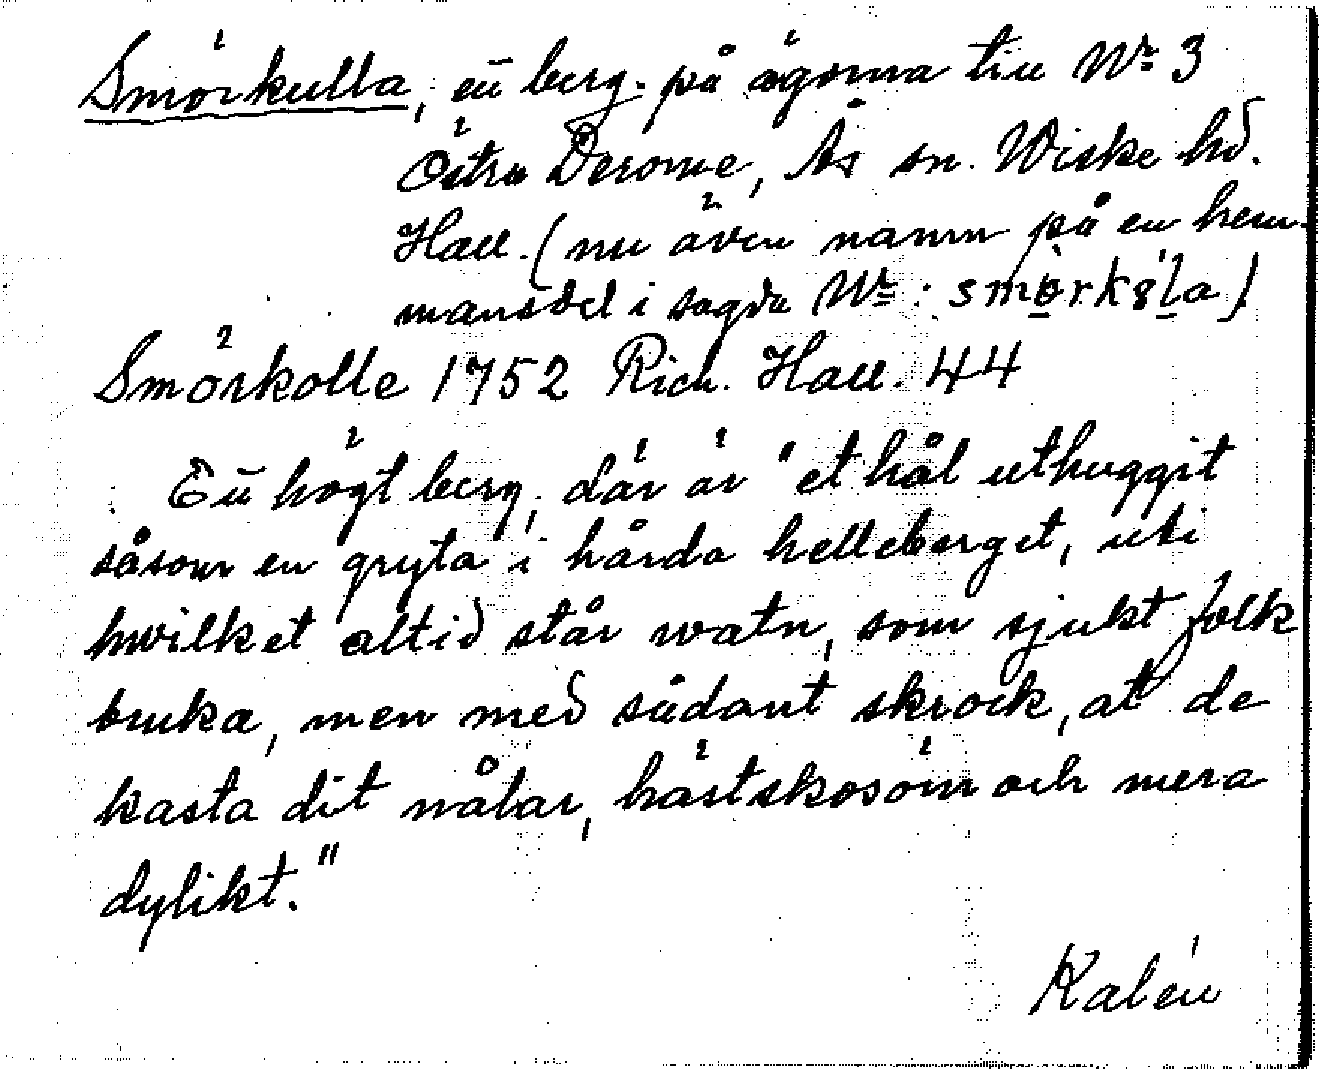 Smörkulla, ett berg på ägorna till Nr 3
Östra Derome, Ås sn. Wiske hd.
Hall. (nu även namn på en hem-
mansdel i sagda Nr:
Smörkolle 1752 Rich. Hall. 44
Ett högt berg, där är "et hål uthuggit
såsom en gryta i hårda helleberget, uti
hwilket altid står watn, som sjukt folk
bruka, men med sådant skrock, at de
kasta dit nålar, hästskosöm och mera
dylikt."
Kalén